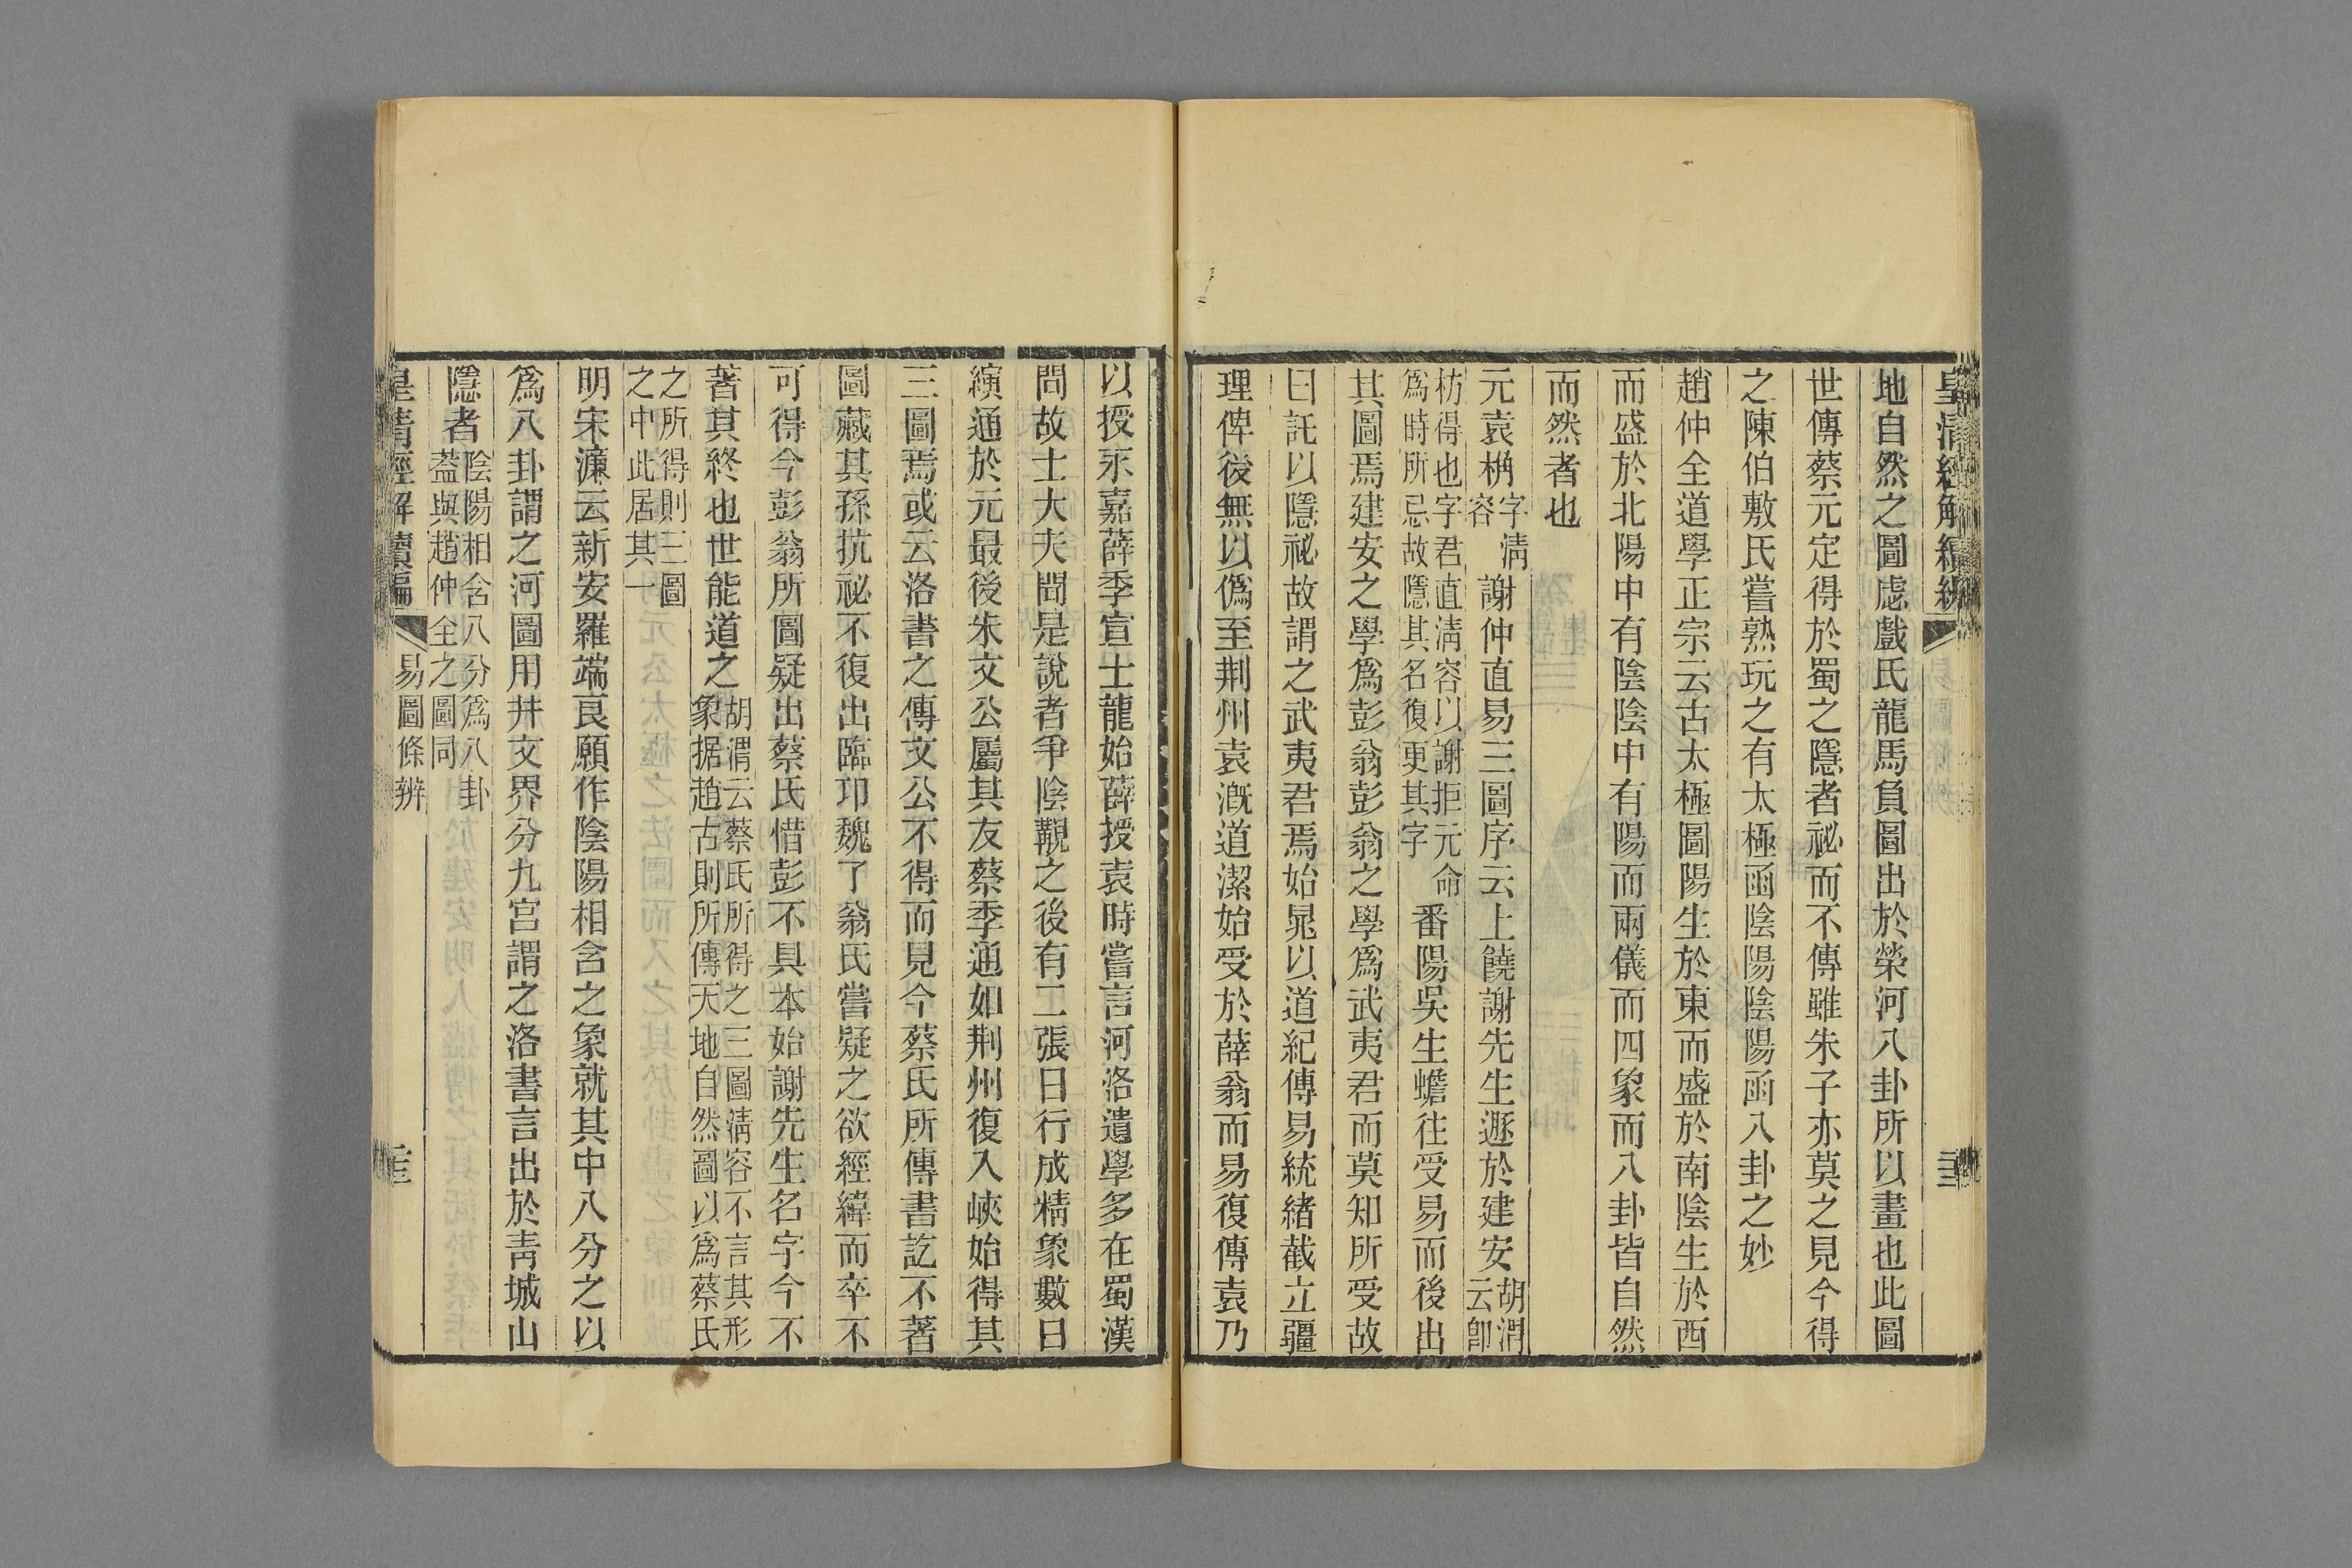 皇清經解續編
地自然之圖虙戲氏龍馬負圖出於滎河八卦所以畫也此圖
世傳蔡元定得於蜀之隱者祕而不傳雖朱子亦莫之見今得
之陳伯敷氏嘗熟玩之有太極函陰陽陰陽函八卦之妙
趙仲全道學正宗云古太極圖陽生於東而盛於南陰生於西
而盛於北陽中有陰陰中有陽而兩儀而四象而八卦皆自然
而然者也
元袁桷字清容謝仲直易三圖序云上饒謝先生遯於建安胡渭云卽
枋得也字君直清容以謝拒元命爲時所忌故隱其名復更其字番陽吳生蟾往受易而後出
其圖焉建安之學爲彭翁彭翁之學爲武夷君而莫知所受故
曰託以隱祕故謂之武夷君焉始晁以道紀傳易統緒截立疆
理俾後無以僞至荆州袁溉道潔始受於薛翁而易復傳袁乃
以授永嘉薛季宣士龍始薛授袁時嘗言河洛遺學多在蜀漢
間故士大夫聞是說者爭陰覯之後有二張曰行成精象數曰
縯通於元最後朱文公屬其友蔡季通如荆州復入峽始得其
三圖焉或云洛書之傳文公不得而見今蔡氏所傳書訖不著
圖藏其孫抗祕不復出臨邛魏了翁氏嘗疑之欲經緯而卒不
可得今彭翁所圖疑出蔡氏惜彭不具本始謝先生名字今不
著其終也世能道之胡渭云蔡氏所得之三圖清容不言其形象据趙古則所傳天地自然圖以爲蔡氏
之所得則三圖之中此居其一
明宋濂云新安羅端良願作陰陽相含之象就其中八分之以
爲八卦謂之河圖用井文界分九宮謂之洛書言出於靑城山
隱者陰陽相含八分爲八卦蓋與趙仲全之圖同
皇清經解續編
易圖條辨